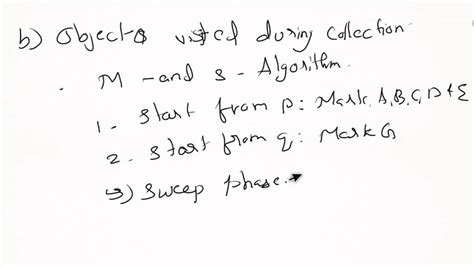 b) Objects visted during collection.
. M - and s - Algorithm.
1 - Start from p: Mark, A, B, C, D & E
2. Start from q: Mark G
3) Sweep phase.